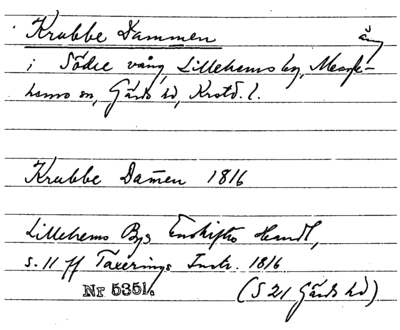 Krabbe Dammen äng
i Södre vång, Lillehems by, Maglehems sn, Gärds hd, Krstd. l.
Krabbe Dam̄en 1816
Lillehems Bys Enskiftes Handl,
s. 11 ff Taxerings Instr. 1816
Nr 5351. (S 21 Gärds hd)